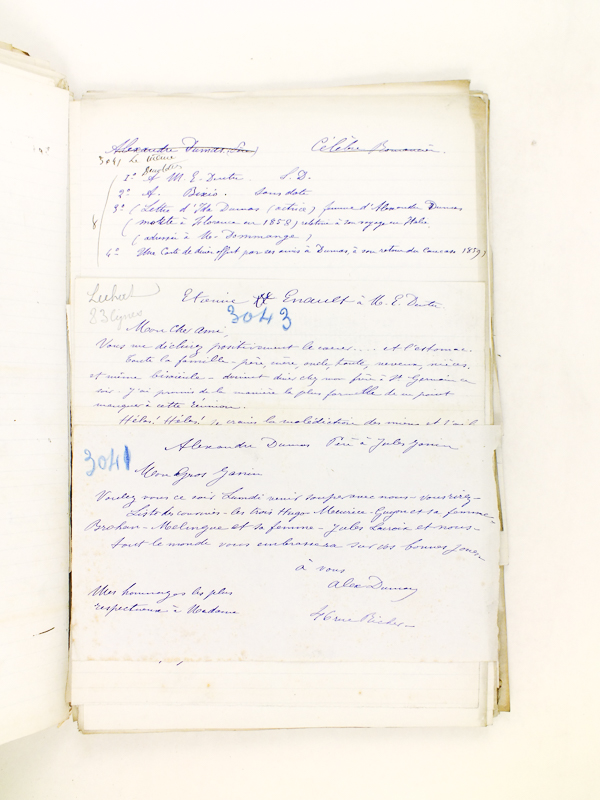 Alexandre Dumas (Père) Célèbre Romancier.
3041 Le
1º A M. E. S.D.
2º A. Bixio. Sans date
3º (Lettre d'Ida Dumas (actrice) femme d'Alexandre Dumas
(morte à Florence en 1858) relative à son voyage en Italie.
(adressée à Mr. Dommange)
4º Une Carte de dîner offert par ses amis à Dumas, à son retour du Caucase 1859)
8
Etienne Enault à M. E.
83 lignes
3043
Mon Cher Ami.
Vous me déchirez positivement le cœur... et l'estomac.
Toute la famille - père, mère, oncle, tante, neveux, nièces.
et même bisaïeule - doivent dîner chez mon frère à St Germain ce
soir. J'ai promis de la manière la plus formelle de ne point
manquer à cette réunion.
Hélas! Hélas! je crains la malédiction des miens et
Alexandre Dumas Père à Jules Janin
3041
Mon Gros Janin
Voulez vous ce soir Lundi venir souper avec nous - vous
Liste des convives - les trois Hugo - Meurice - Guyon et sa femme -
Brohan - Melingue et sa femme - Jules Lacroix et nous -
tout le monde vous embrassera sur vos bonnes joues -
à vous
Alex Dumas
Mes hommages les plus
respectueux à Madame
rue Richer -